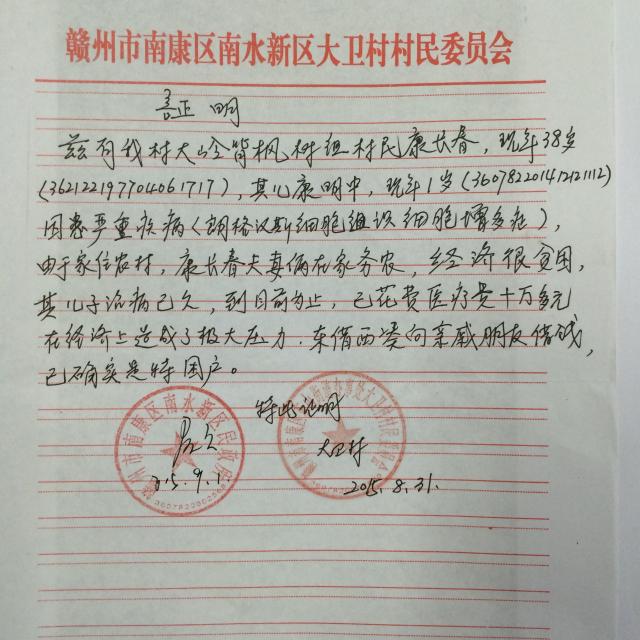 赣州市南康区南水新区大卫村村民委员会
証明
兹有我村大岭背枫树组村民康长春，现年38岁
(362122197704061717)，其儿康明中，现年1岁(360782201412121112)
因患严重疾病(朗格汉斯细胞组织细胞增多症)，
由于家住农村，康长春夫妻俩在家务农，经济很贫困，
其儿子治病已久，到目前为止，已花费医疗费十万多元
在经济上造成了极大压力．东借西凑向亲戚朋友借钱，
已确实是特困户。
特此证明
属实
大卫村
2015.9.1.
2015.8.31.
赣州市南康区南水新区民政所
大卫村村民委员会